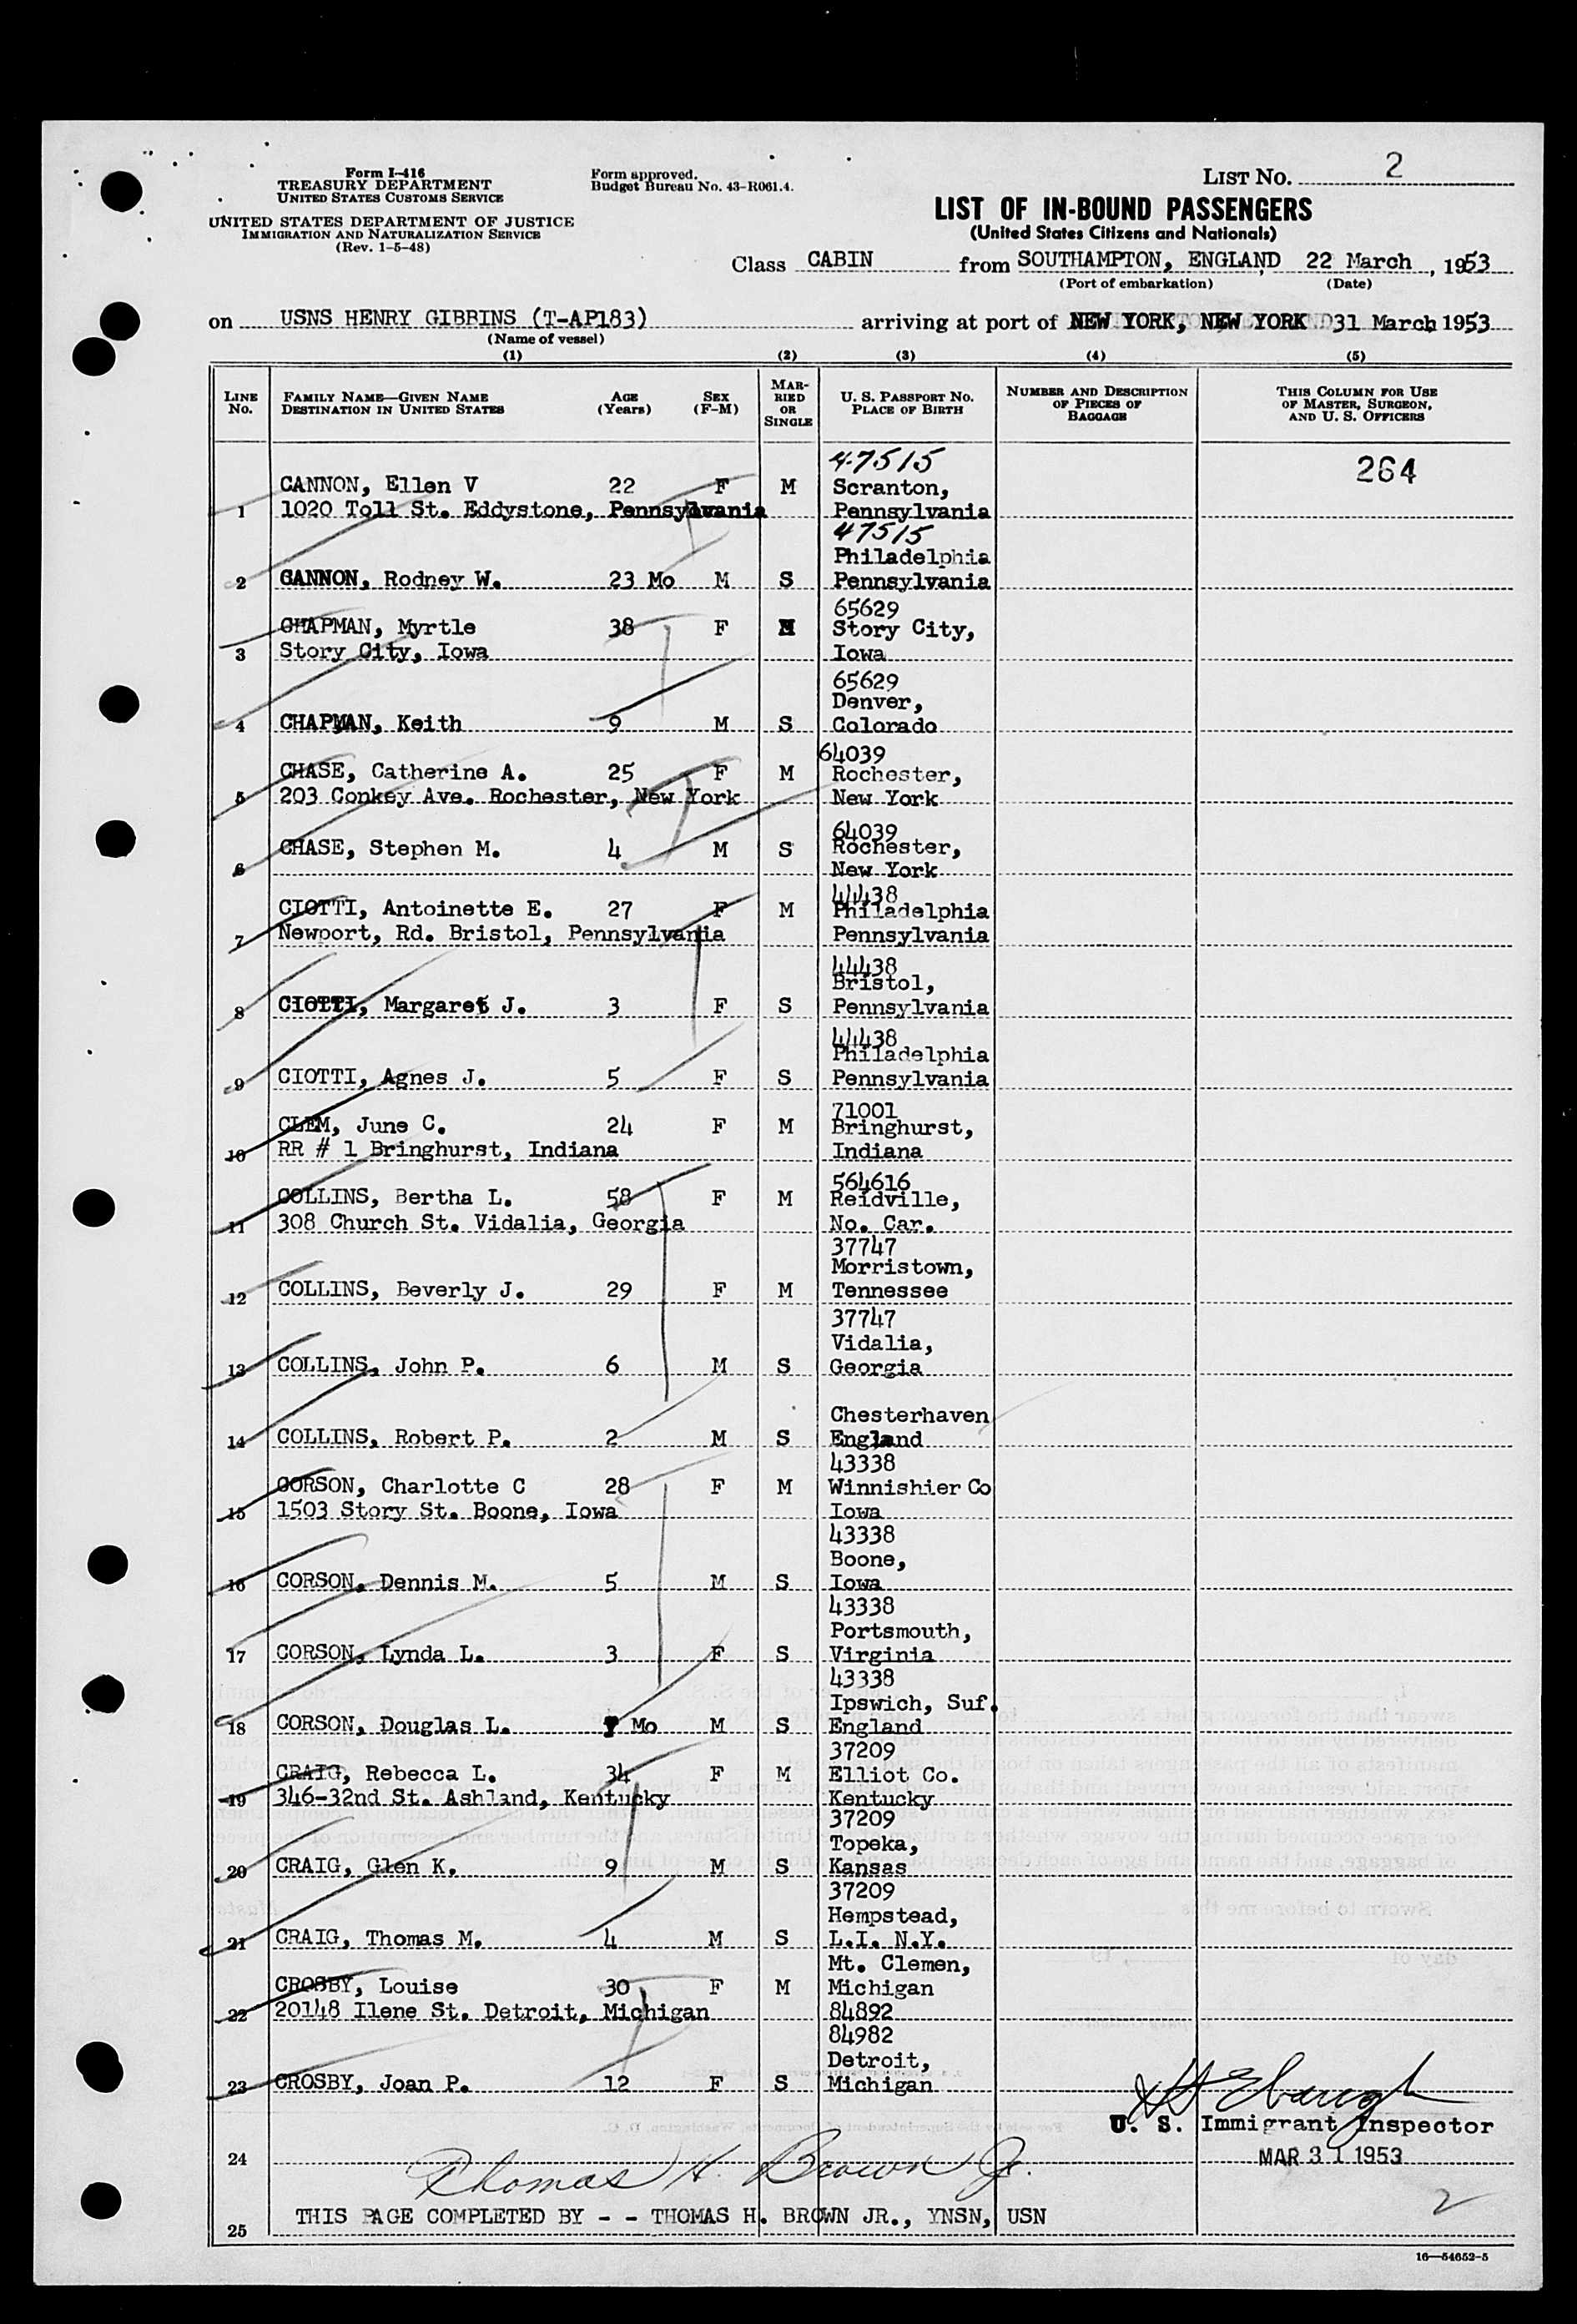 Form I-416
TREASURY DEPARTMENT
UNITED STATES CUSTOMS SERVICE
UNITED STATES DEPARTMENT OF JUSTICE
IMMIGRATION AND NATURALIZATION SERVICE
(Rev. 1-5-48)
Form approved.
Budget Bureau No. 43-R061.4.
LIST No. 2
LIST OF IN-BOUND PASSENGERS
(United States Citizens and Nationals)
Class CABIN from SOUTHAMPTON, ENGLAND 22 March, 1953
(Port of embarkation) (Date)
on USNS HENRY GIBBINS (T-AP183) arriving at port of NEW YORK, NEW YORK 31 March, 1953
(Name of vessel)
(1) (2) (3) (4) (5)
LINE No. FAMILY NAME—GIVEN NAME DESTINATION IN UNITED STATES AGE (Years) SEX (F-M) MARRIED OR SINGLE U. S. PASSPORT NO. PLACE OF BIRTH NUMBER AND DESCRIPTION OF PIECES OF BAGGAGE THIS COLUMN FOR USE OF MASTER, SURGEON, AND U. S. OFFICERS
47515
264
CANNON, Ellen V 22 F M Scranton,
1 1020 Toll St. Eddystone, Pennsylvania Pennsylvania
47515
Philadelphia
2 CANNON, Rodney W. 23 Mo M S Pennsylvania
65629
CHAPMAN, Myrtle 38 F M Story City,
3 Story City, Iowa Iowa
65629
Denver,
4 CHAPMAN, Keith 9 M S Colorado
64039
CHASE, Catherine A. 25 F M Rochester,
5 203 Conkey Ave. Rochester, New York New York
64039
CHASE, Stephen M. 4 M S Rochester,
6 New York
44438
CIOTTI, Antoinette E. 27 F M Philadelphia
7 Newport, Rd. Bristol, Pennsylvania Pennsylvania
44438
Bristol,
8 CIOTTI, Margaret J. 3 F S Pennsylvania
44438
Philadelphia
9 CIOTTI, Agnes J. 5 F S Pennsylvania
71001
CLEM, June C. 24 F M Bringhurst,
10 RR # 1 Bringhurst, Indiana Indiana
564616
COLLINS, Bertha L. 58 F M Reidville,
11 308 Church St. Vidalia, Georgia No. Car.
37747
Morristown,
12 COLLINS, Beverly J. 29 F M Tennessee
37747
Vidalia,
13 COLLINS, John P. 6 M S Georgia
Chesterhaven
14 COLLINS, Robert P. 2 M S England
43338
CORSON, Charlotte C 28 F M Winnishier Co
15 1503 Story St. Boone, Iowa Iowa
43338
Boone,
16 CORSON, Dennis M. 5 M S Iowa
43338
Portsmouth,
17 CORSON, Lynda L. 3 F S Virginia
43338
Ipswich, Suf.
18 CORSON, Douglas L. Mo M S England
37209
CRAIG, Rebecca L. 34 F M Elliot Co.
19 346-32nd St. Ashland, Kentucky Kentucky
37209
Topeka,
20 CRAIG, Glen K. 9 M S Kansas
37209
Hempstead,
21 CRAIG, Thomas M. 4 M S L.I. N.Y.
Mt. Clemen,
CROSBY, Louise 30 F M Michigan
22 20148 Ilene St. Detroit, Michigan 84892
84982
Detroit,
23 CROSBY, Joan P. 12 F S Michigan
U. S. Immigrant Inspector
MAR 31 1953
24 Thomas H. Brown Jr.
2
25 THIS PAGE COMPLETED BY - - THOMAS H. BROWN JR., YNSN, USN
16—54652-5